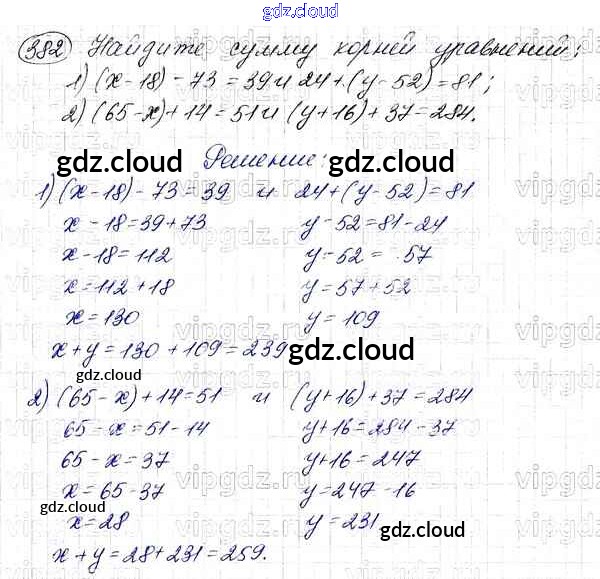 gdz.cloud
382 Найдите сумму корней уравнений:
1) (x-18)-73=39 и 24+(y-52)=81;
2) (65-x)+14=51 и (y+16)+37=284.
gdz.cloud Решение: gdz.cloud
1) (x-18)-73=39 и 24+(y-52)=81
x-18=39+73 y-52=81-24
x-18=112 y-52=57
x=112+18 y=57+52
x=130 y=109
x+y=130+109=239 gdz.cloud
gdz.cloud
2) (65-x)+14=51 и (y+16)+37=284
65-x=51-14 y+16=284-37
65-x=37 y+16=247
x=65-37 y=247-16
x=28 y=231 gdz.cloud
x+y=28+231=259.
gdz.cloud